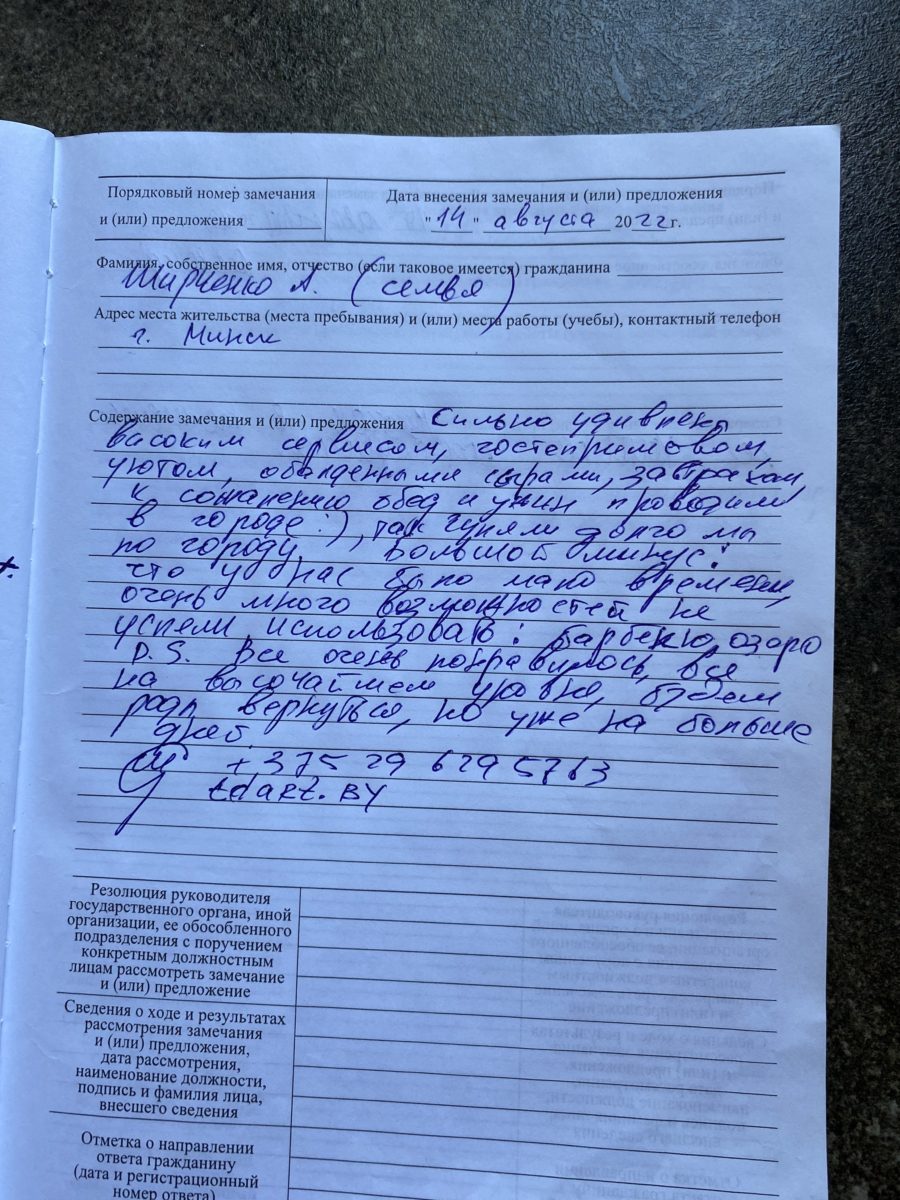 Порядковый номер замечания
и (или) предложения
Дата внесения замечания и (или) предложения
"14" августа 2022 г.
Фамилия, собственное имя, отчество (если таковое имеется) гражданина
А. (семья)
Адрес места жительства (места пребывания) и (или) места работы (учебы), контактный телефон
г. Минск
Содержание замечания и (или) предложения Сильно удивлены
высоким сервисом, гостеприимством,
уютом, обалденными сырами, завтраком,
к сожалению обед и ужин проводили
в городе :), так гуляли долго мы
по городу. Большой минус:
что у нас было мало времени,
очень много возможностей не
успели использовать: барбекю, озеро
P.S. Все очень понравилось, все
на высочайшем уровне, будем
рады вернуться, но уже на больше
дней.
+375 29 6295763
tdart.BY
Резолюция руководителя
государственного органа, иной
организации, ее обособленного
подразделения с поручением
конкретным должностным
лицам рассмотреть замечание
и (или) предложение
Сведения о ходе и результатах
рассмотрения замечания
и (или) предложения,
дата рассмотрения,
наименование должности,
подпись и фамилия лица,
внесшего сведения
Отметка о направлении
ответа гражданину
(дата и регистрационный
номер ответа)